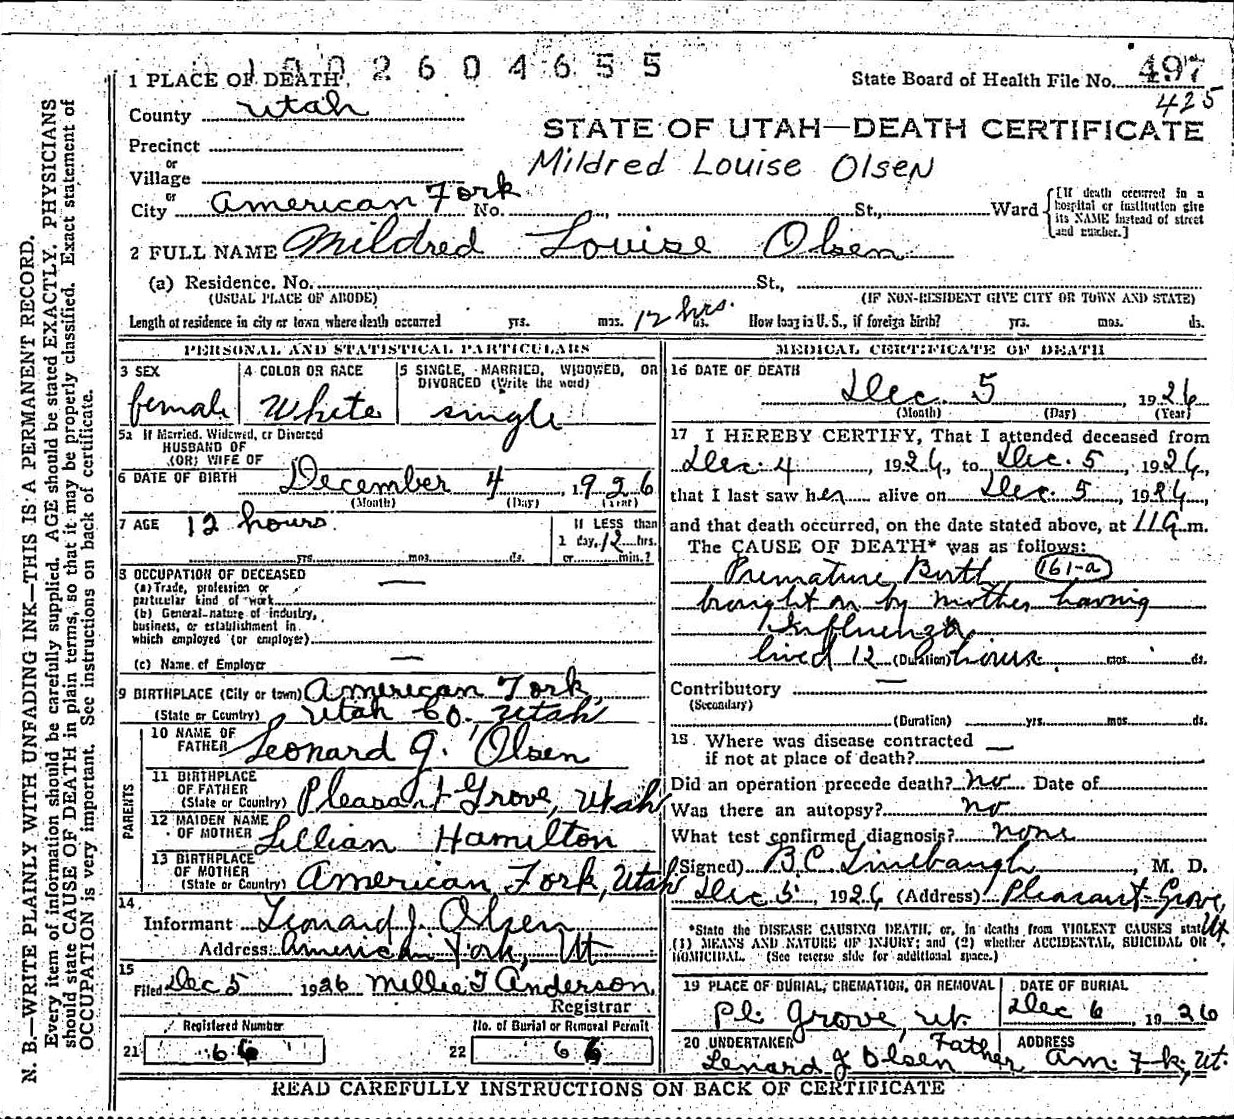 1002604655
1 PLACE OF DEATH
State Board of Health File No. 497
425
County Utah
STATE OF UTAH—DEATH CERTIFICATE
Precinct
or
Village
Mildred Louise Olsen
or
City American Fork No. St., Ward
[If death occurred in a
hospital or institution give
its NAME instead of street
and number.]
2 FULL NAME Mildred Louise Olsen
(a) Residence. No. St.,
(USUAL PLACE OF ABODE) (IF NON-RESIDENT GIVE CITY OR TOWN AND STATE)
Length of residence in city or town where death occurred yrs. mos. 12 hrs. ds. How long in U. S., if foreign birth? yrs. mos. ds.
PERSONAL AND STATISTICAL PARTICULARS
3 SEX
female
4 COLOR OR RACE
White
5 SINGLE, MARRIED, WIDOWED, OR
DIVORCED (Write the word)
single
5a If Married, Widowed, or Divorced
HUSBAND OF
(OR) WIFE OF
6 DATE OF BIRTH December 4, 1926
(Month) (Day) (Year)
7 AGE 12 hours.
yrs. mos. ds.
If LESS than
1 day, 12 hrs.
or min.?
8 OCCUPATION OF DECEASED —
(a) Trade, profession or
particular kind of work
(b) General nature of industry,
business, or establishment in
which employed (or employer)
(c) Name of Employer —
9 BIRTHPLACE (City or town) American Fork,
(State or Country) Utah Co. Utah
PARENTS
10 NAME OF
FATHER Leonard J. Olsen
11 BIRTHPLACE
OF FATHER
(State or Country) Pleasant Grove, Utah
12 MAIDEN NAME
OF MOTHER Lillian Hamilton
13 BIRTHPLACE
OF MOTHER
(State or Country) American Fork, Utah
14
Informant Leonard J. Olsen
Address American Fork, Ut
15
Filed Dec 5 1926 Millie T Anderson,
Registrar
Registered Number
21 66
No. of Burial or Removal Permit
22 66
MEDICAL CERTIFICATE OF DEATH
16 DATE OF DEATH
Dec. 5 1926
(Month) (Day) (Year)
17 I HEREBY CERTIFY, That I attended deceased from
Dec. 4, 1926, to Dec. 5, 1926,
that I last saw her alive on Dec. 5, 1926,
and that death occurred, on the date stated above, at 11 a m.
The CAUSE OF DEATH* was as follows:
Premature Birth 161-a
brought on by mother having
Influenza
lived 12 (Duration) hours. mos. ds.
Contributory —
(Secondary)
(Duration) yrs. mos. ds.
18 Where was disease contracted
if not at place of death? —
Did an operation precede death? no Date of
Was there an autopsy? no
What test confirmed diagnosis? none
(Signed) B.C. Linebaugh, M. D.
Dec 5, 1926 (Address) Pleasant Grove,
Ut.
*State the DISEASE CAUSING DEATH, or, in deaths from VIOLENT CAUSES state
(1) MEANS AND NATURE OF INJURY; and (2) whether ACCIDENTAL, SUICIDAL OR
HOMICIDAL. (See reverse side for additional space.)
19 PLACE OF BURIAL, CREMATION, OR REMOVAL
Pl. Grove, Ut.
DATE OF BURIAL
Dec 6, 1926
20 UNDERTAKER Father
Lenard J Olsen
ADDRESS
Am. F-k, Ut.
READ CAREFULLY INSTRUCTIONS ON BACK OF CERTIFICATE
N. B.—WRITE PLAINLY WITH UNFADING INK—THIS IS A PERMANENT RECORD.
Every item of information should be carefully supplied. AGE should be stated EXACTLY. PHYSICIANS
should state CAUSE OF DEATH in plain terms, so that it may be properly classified. Exact statement of
OCCUPATION is very important. See instructions on back of certificate.